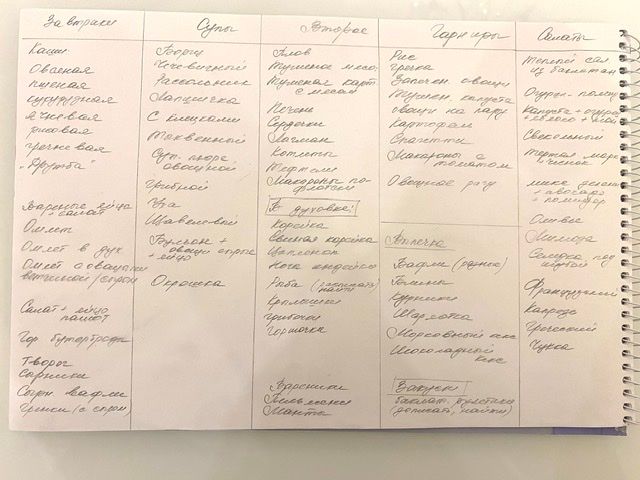 Завтраки
Каши:
Овсяная
пшеная
кукурузная
ячневая
рисовая
гречневая
"Дружба"
Вареные яйца
+ салат
Омлет
Омлет в дух
Омлет с овощами
ветчиной/сыром
Салат + яйцо
пашот
Гор. бутерброды
Творог
Сырники
Сырн. вафли
Гренки (с сыром)
Супы
Борщ
Чечевичный
Рассольник
Лапшичка
С клецками
Тыквенный
Суп-пюре
овощной
Грибной
Уха
Щавелевый
Бульон +
овощи
+ яйцо
Окрошка
Второе
Плов
Тушеное мясо
Тушеная карт.
с мясом
Печень
Сердечки
Лагман
Котлеты
Тефтели
Макароны по-
флотски
В духовке:
Корейка
Свиная корейка
Цыпленок
Нога индейки
Рыба
Крылышки
Грибочки
Горшочки
Вареники
Пельмени
Манты
Гарниры
Рис
Гречка
Запечен. овощи
Тушен. капуста
овощи на пару
Картофель
Спагетти
Макароны с
томатом
Овощное рагу
Выпечка
Вафли (разные)
Блины
Шарлотка
Морковный кекс
Шоколадный
кекс
Закуски
баклаж. рулетики
(дописать, найти)
Салаты
Теплый сал
из баклажан
Огурец-помид
Капуста + огурец
Свекольный
Тертая морк
чеснок
микс
+ авокадо
+ помидор
Оливье
Мимоза
Селедка под
шубой
Французский
Капрезе
Греческий
Чука